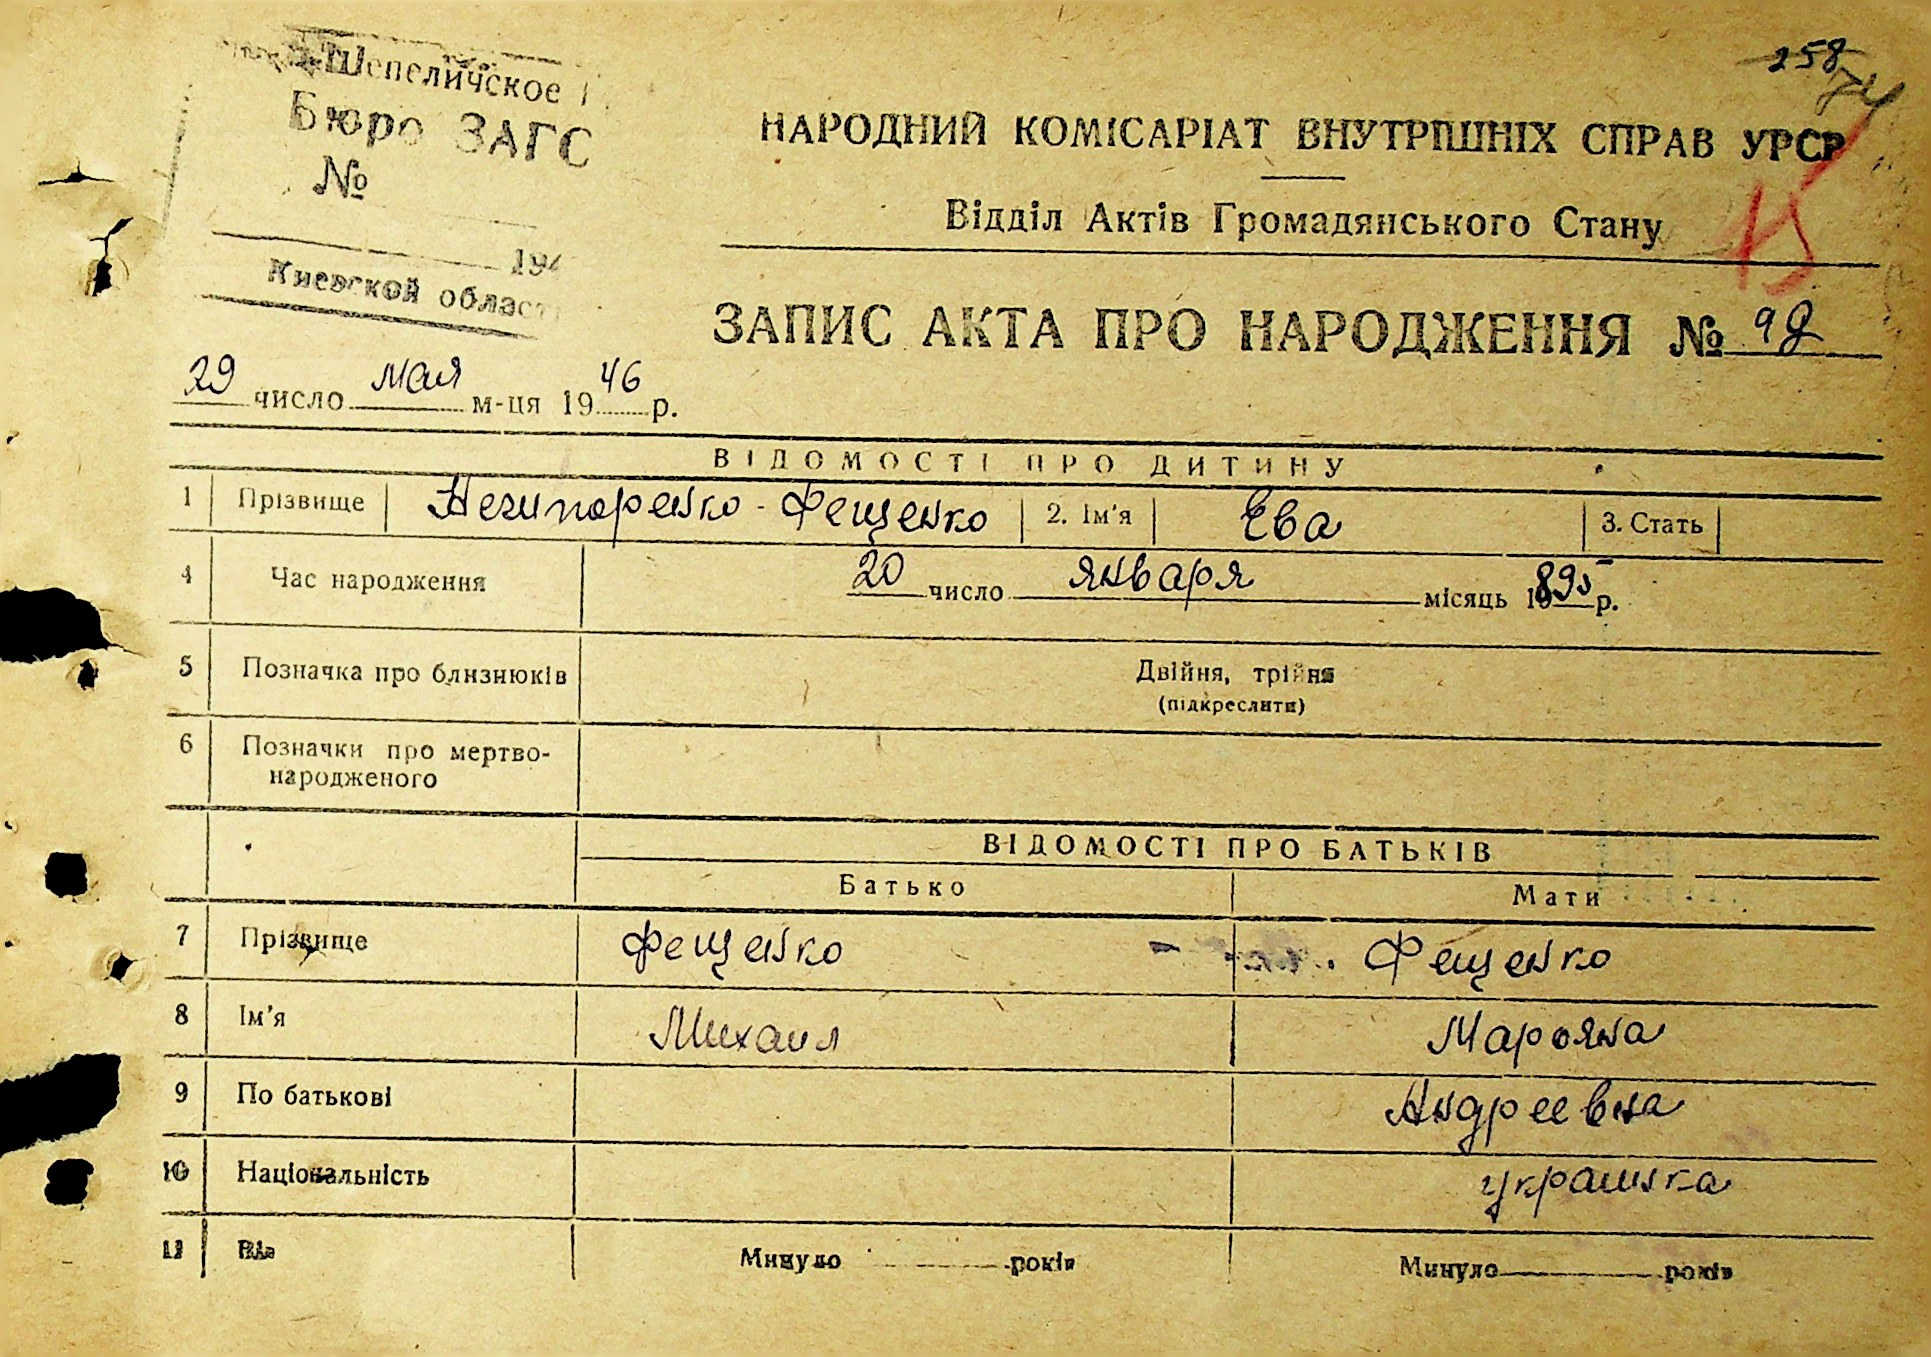 Шепеличское
258
Бюро ЗАГС
№
194
Киевской област
НАРОДНИЙ КОМІСАРІАТ ВНУТРІШНІХ СПРАВ УРСР
Відділ Актів Громадянського Стану
15
ЗАПИС АКТА ПРО НАРОДЖЕННЯ №
29 число мая м-ця 1946 р.
ВІДОМОСТІ ПРО ДИТИНУ
1 Прізвище Нечипоренко - Фещенко 2. Ім'я Ева 3. Стать
4 Час народження 20 число января місяць 1895 р.
5 Позначка про близнюків Двійня, трійня
(підкреслити)
6 Позначки про мертво-
народженого
ВІДОМОСТІ ПРО БАТЬКІВ
Батько Мати
7 Прізвище Фещенко - Фещенко
8 Ім'я Михаил Марьяна
9 По батькові Андреевна
10 Національність украинка
11 Вік Минуло років Минуло років